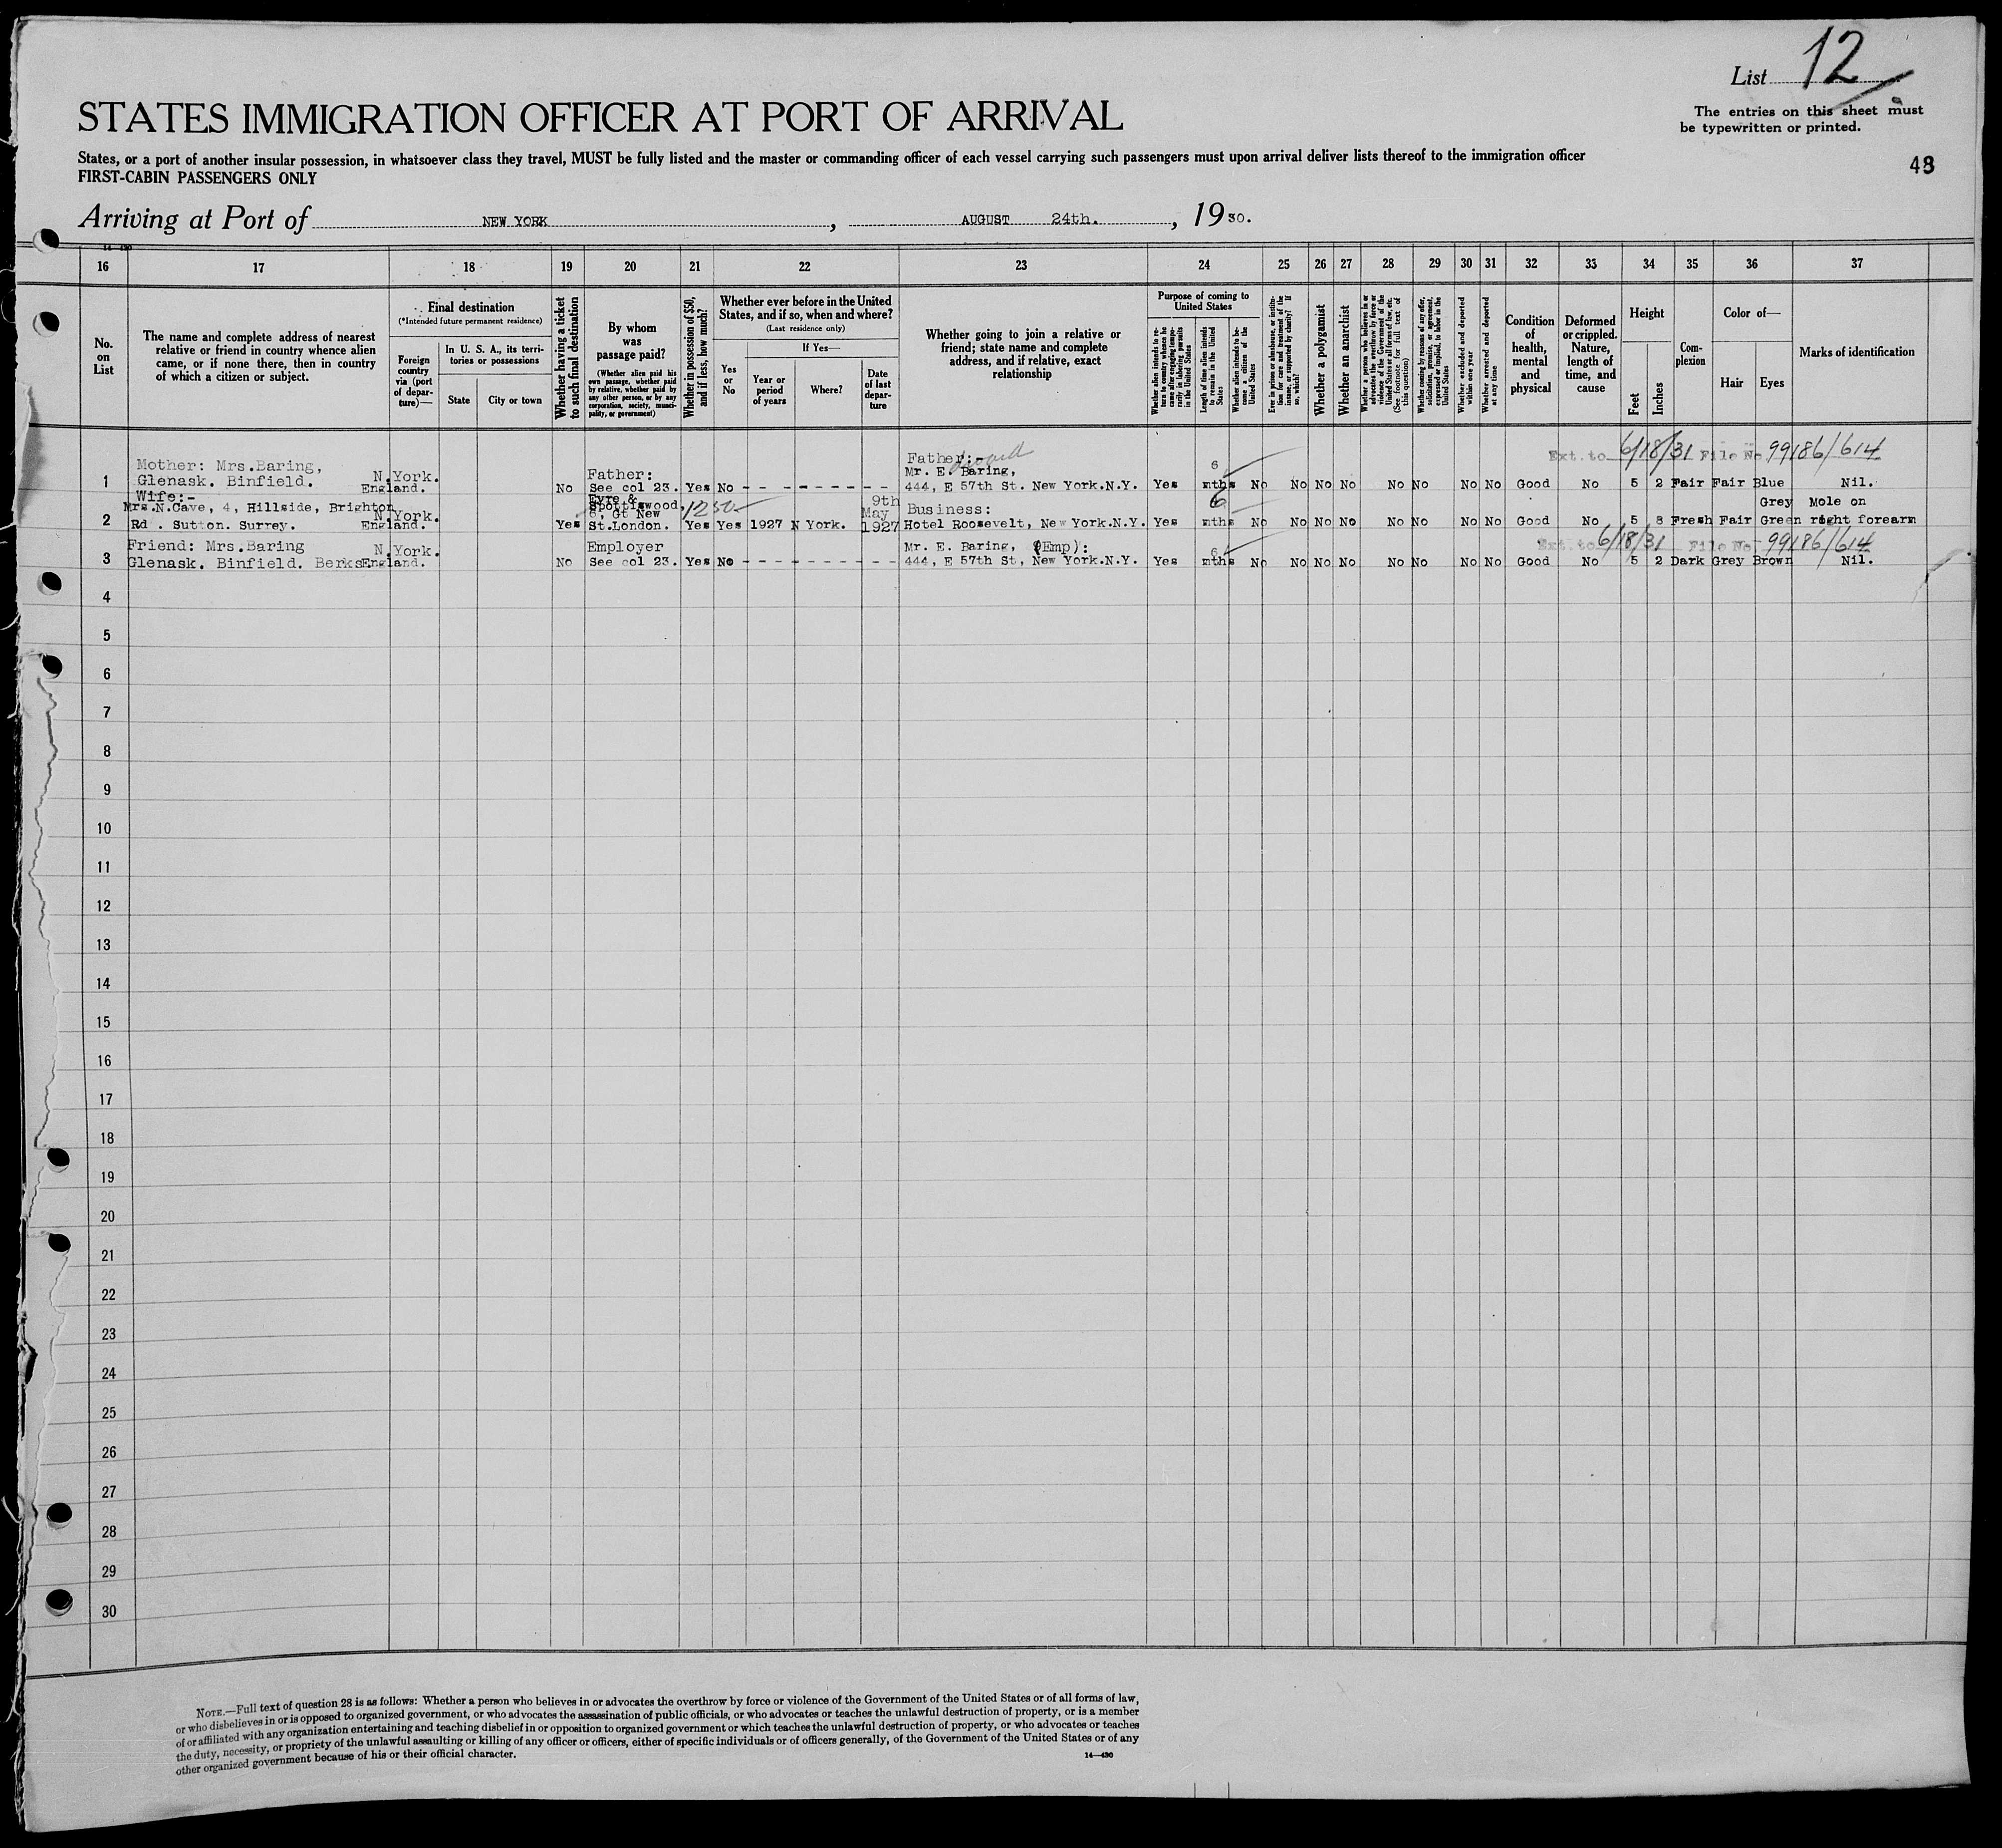 List 12
STATES IMMIGRATION OFFICER AT PORT OF ARRIVAL
The entries on this sheet must
be typewritten or printed.
States, or a port of another insular possession, in whatsoever class they travel, MUST be fully listed and the master or commanding officer of each vessel carrying such passengers must upon arrival deliver lists thereof to the immigration officer
FIRST-CABIN PASSENGERS ONLY
48
Arriving at Port of NEW YORK, AUGUST 24th., 1930.
16 17 18 19 20 21 22 23 24 25 26 27 28 29 30 31 32 33 34 35 36 37
No. on List
The name and complete address of nearest
relative or friend in country whence alien
came, or if none there, then in country
of which a citizen or subject.
Final destination
(*Intended future permanent residence)
Foreign country via (port of departure)—
In U. S. A., its territories or possessions
State
City or town
Whether having a ticket to such final destination
By whom was passage paid?
(Whether alien paid his own passage, whether paid by relative, whether paid by any other person, or by any corporation, society, municipality, or government)
Whether in possession of $50, and if less, how much?
Whether ever before in the United States, and if so, when and where?
(Last residence only)
Yes or No
If Yes—
Year or period of years
Where?
Date of last departure
Whether going to join a relative or
friend; state name and complete
address, and if relative, exact
relationship
Purpose of coming to United States
Whether alien intends to return to country whence he came after engaging temporarily in laboring pursuits in the United States
Length of time alien intends to remain in the United States
Whether alien intends to become a citizen of the United States
Ever in prison or almshouse, or institution for care and treatment of the insane, or supported by charity? If so, which?
Whether a polygamist
Whether an anarchist
Whether a person who believes in or advocates the overthrow by force or violence of the Government of the United States or all forms of law, etc. (See footnote for full text of this question)
Whether coming by reasons of any offer, solicitation, promise, or agreement, expressed or implied, to labor in the United States
Whether excluded and deported within one year
Whether arrested and deported at any time
Condition of health, mental and physical
Deformed or crippled. Nature, length of time, and cause
Height
Feet
Inches
Complexion
Color of—
Hair
Eyes
Marks of identification
Ext. to 6/18/31 File No 99186/614
1 Mother: Mrs.Baring, Glenask. Binfield. N.York. England. No Father: See col 23. Yes No - - - - - - - - Father:- Mr. E. Baring, 444, E 57th St. New York.N.Y. Yes 6 mths No No No No No No No No Good No 5 2 Fair Fair Blue Nil.
2 Wife:- Mrs.N.Cave, 4, Hillside, Brighton Rd . Sutton. Surrey. N.York. England. Yes Eyre & Spottiswood, 6, Gt New St.London. 1250 Yes Yes 1927 N York. 9th May 1927 Business: Hotel Roosevelt, New York.N.Y. Yes 6 mths No No No No No No No No Good No 5 8 Fresh Fair Grey Green Mole on right forearm
Ext. to 6/18/31 File No 99186/614
3 Friend: Mrs.Baring Glenask. Binfield. Berks N.York. England. No Employer See col 23. Yes No - - - - - - - - Mr. E. Baring, (Emp): 444, E 57th St, New York.N.Y. Yes 6 mths No No No No No No No No Good No 5 2 Dark Grey Brown Nil.
4
5
6
7
8
9
10
11
12
13
14
15
16
17
18
19
20
21
22
23
24
25
26
27
28
29
30
NOTE.—Full text of question 28 is as follows: Whether a person who believes in or advocates the overthrow by force or violence of the Government of the United States or of all forms of law,
or who disbelieves in or is opposed to organized government, or who advocates the assassination of public officials, or who advocates or teaches the unlawful destruction of property, or is a member
of or affiliated with any organization entertaining and teaching disbelief in or opposition to organized government or which teaches the unlawful destruction of property, or who advocates or teaches
the duty, necessity, or propriety of the unlawful assaulting or killing of any officer or officers, either of specific individuals or of officers generally, of the Government of the United States or of any
other organized government because of his or their official character.
14—430